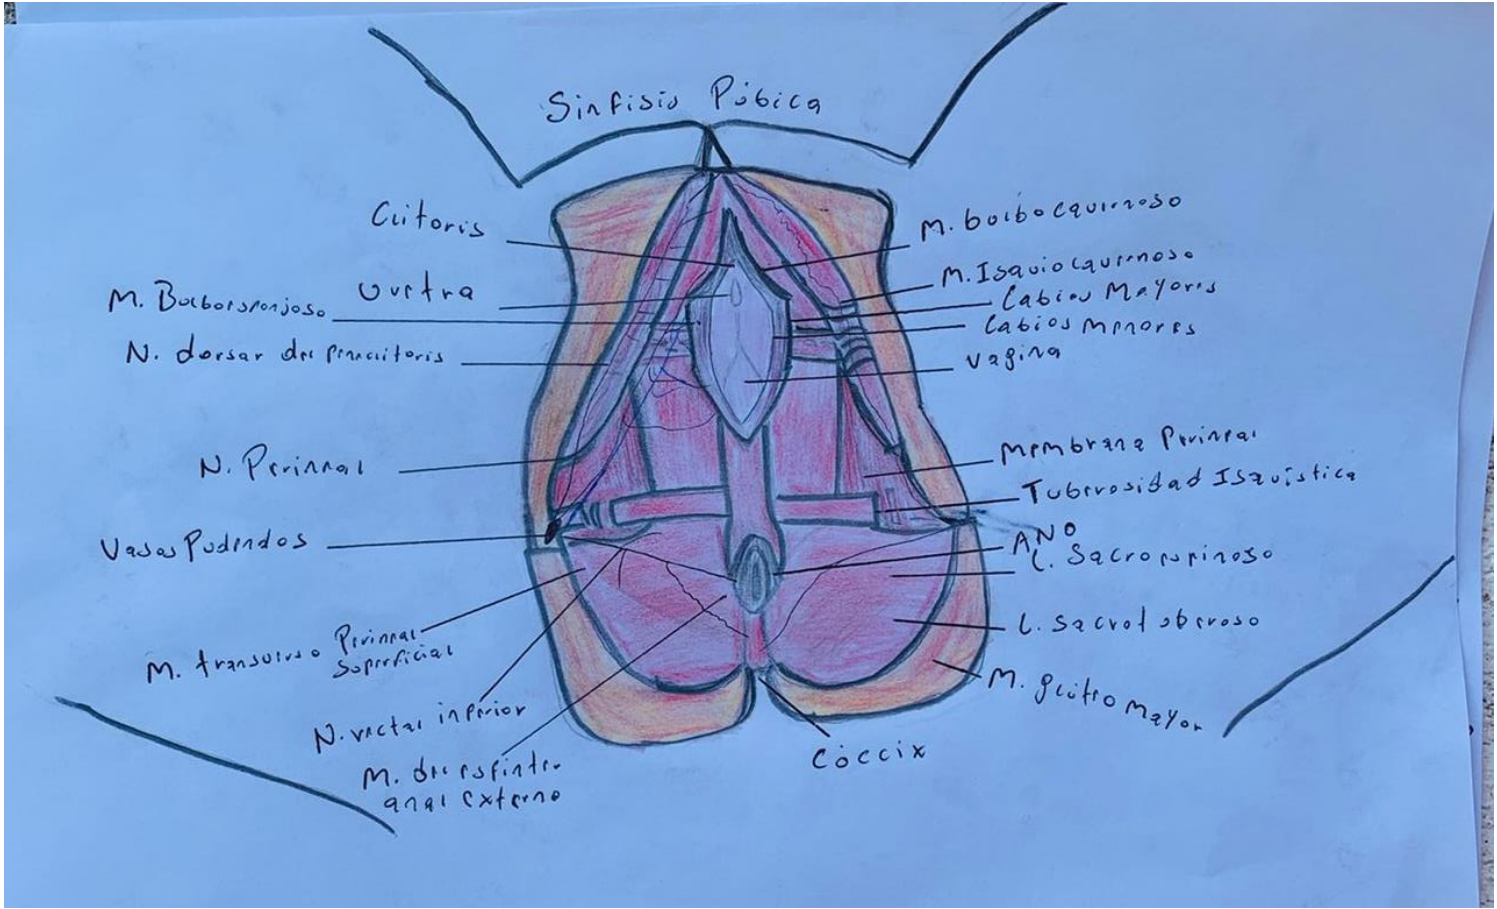 Sinfisis Púbica
Clitoris
Uretra
M. Bulboesponjoso
N. dorsal del pene clitoris
N. Perineal
Vasos Pudendos
M. transverso Perineal
Superficial
N. rectal inferior
M. del esfinter
anal externo
M. bulbocavernoso
M. Isquiocavernoso
Labios Mayores
Labios menores
vagina
membrana Perineal
Tuberosidad Isquiática
ANO
L. Sacroespinoso
L. Sacrotuberoso
M. glúteo mayor
Cóccix